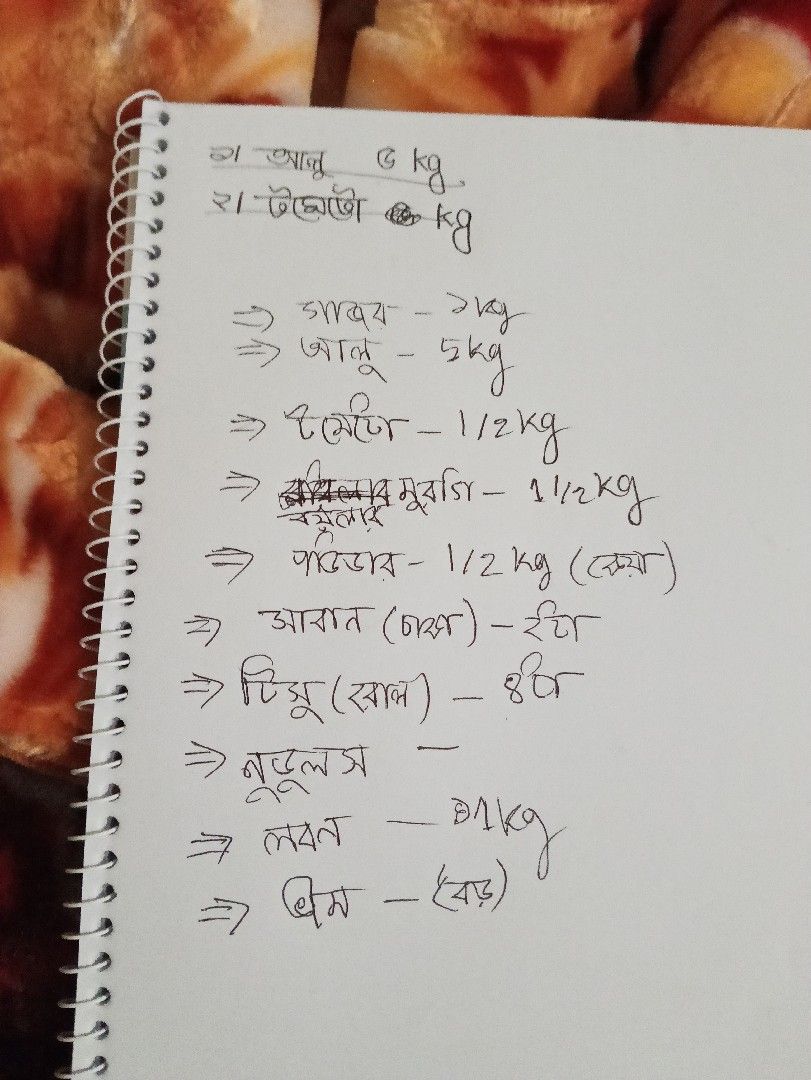 ১। আলু ৫ kg
২। টমেটো kg
⇒ গাজর – ১kg
⇒ আলু – 5kg
⇒ টমেটো – 1/2kg
⇒ মুরগি – 1 1/2kg
বয়লার
⇒ পাউডার – 1/2 kg (রুয়া)
⇒ সাবান (চাকা) – ২টা
⇒ টিসু (রোল) – ৪টা
⇒ নুডুলস –
⇒ লবন – 1kg
⇒ ভিম – (বড়)